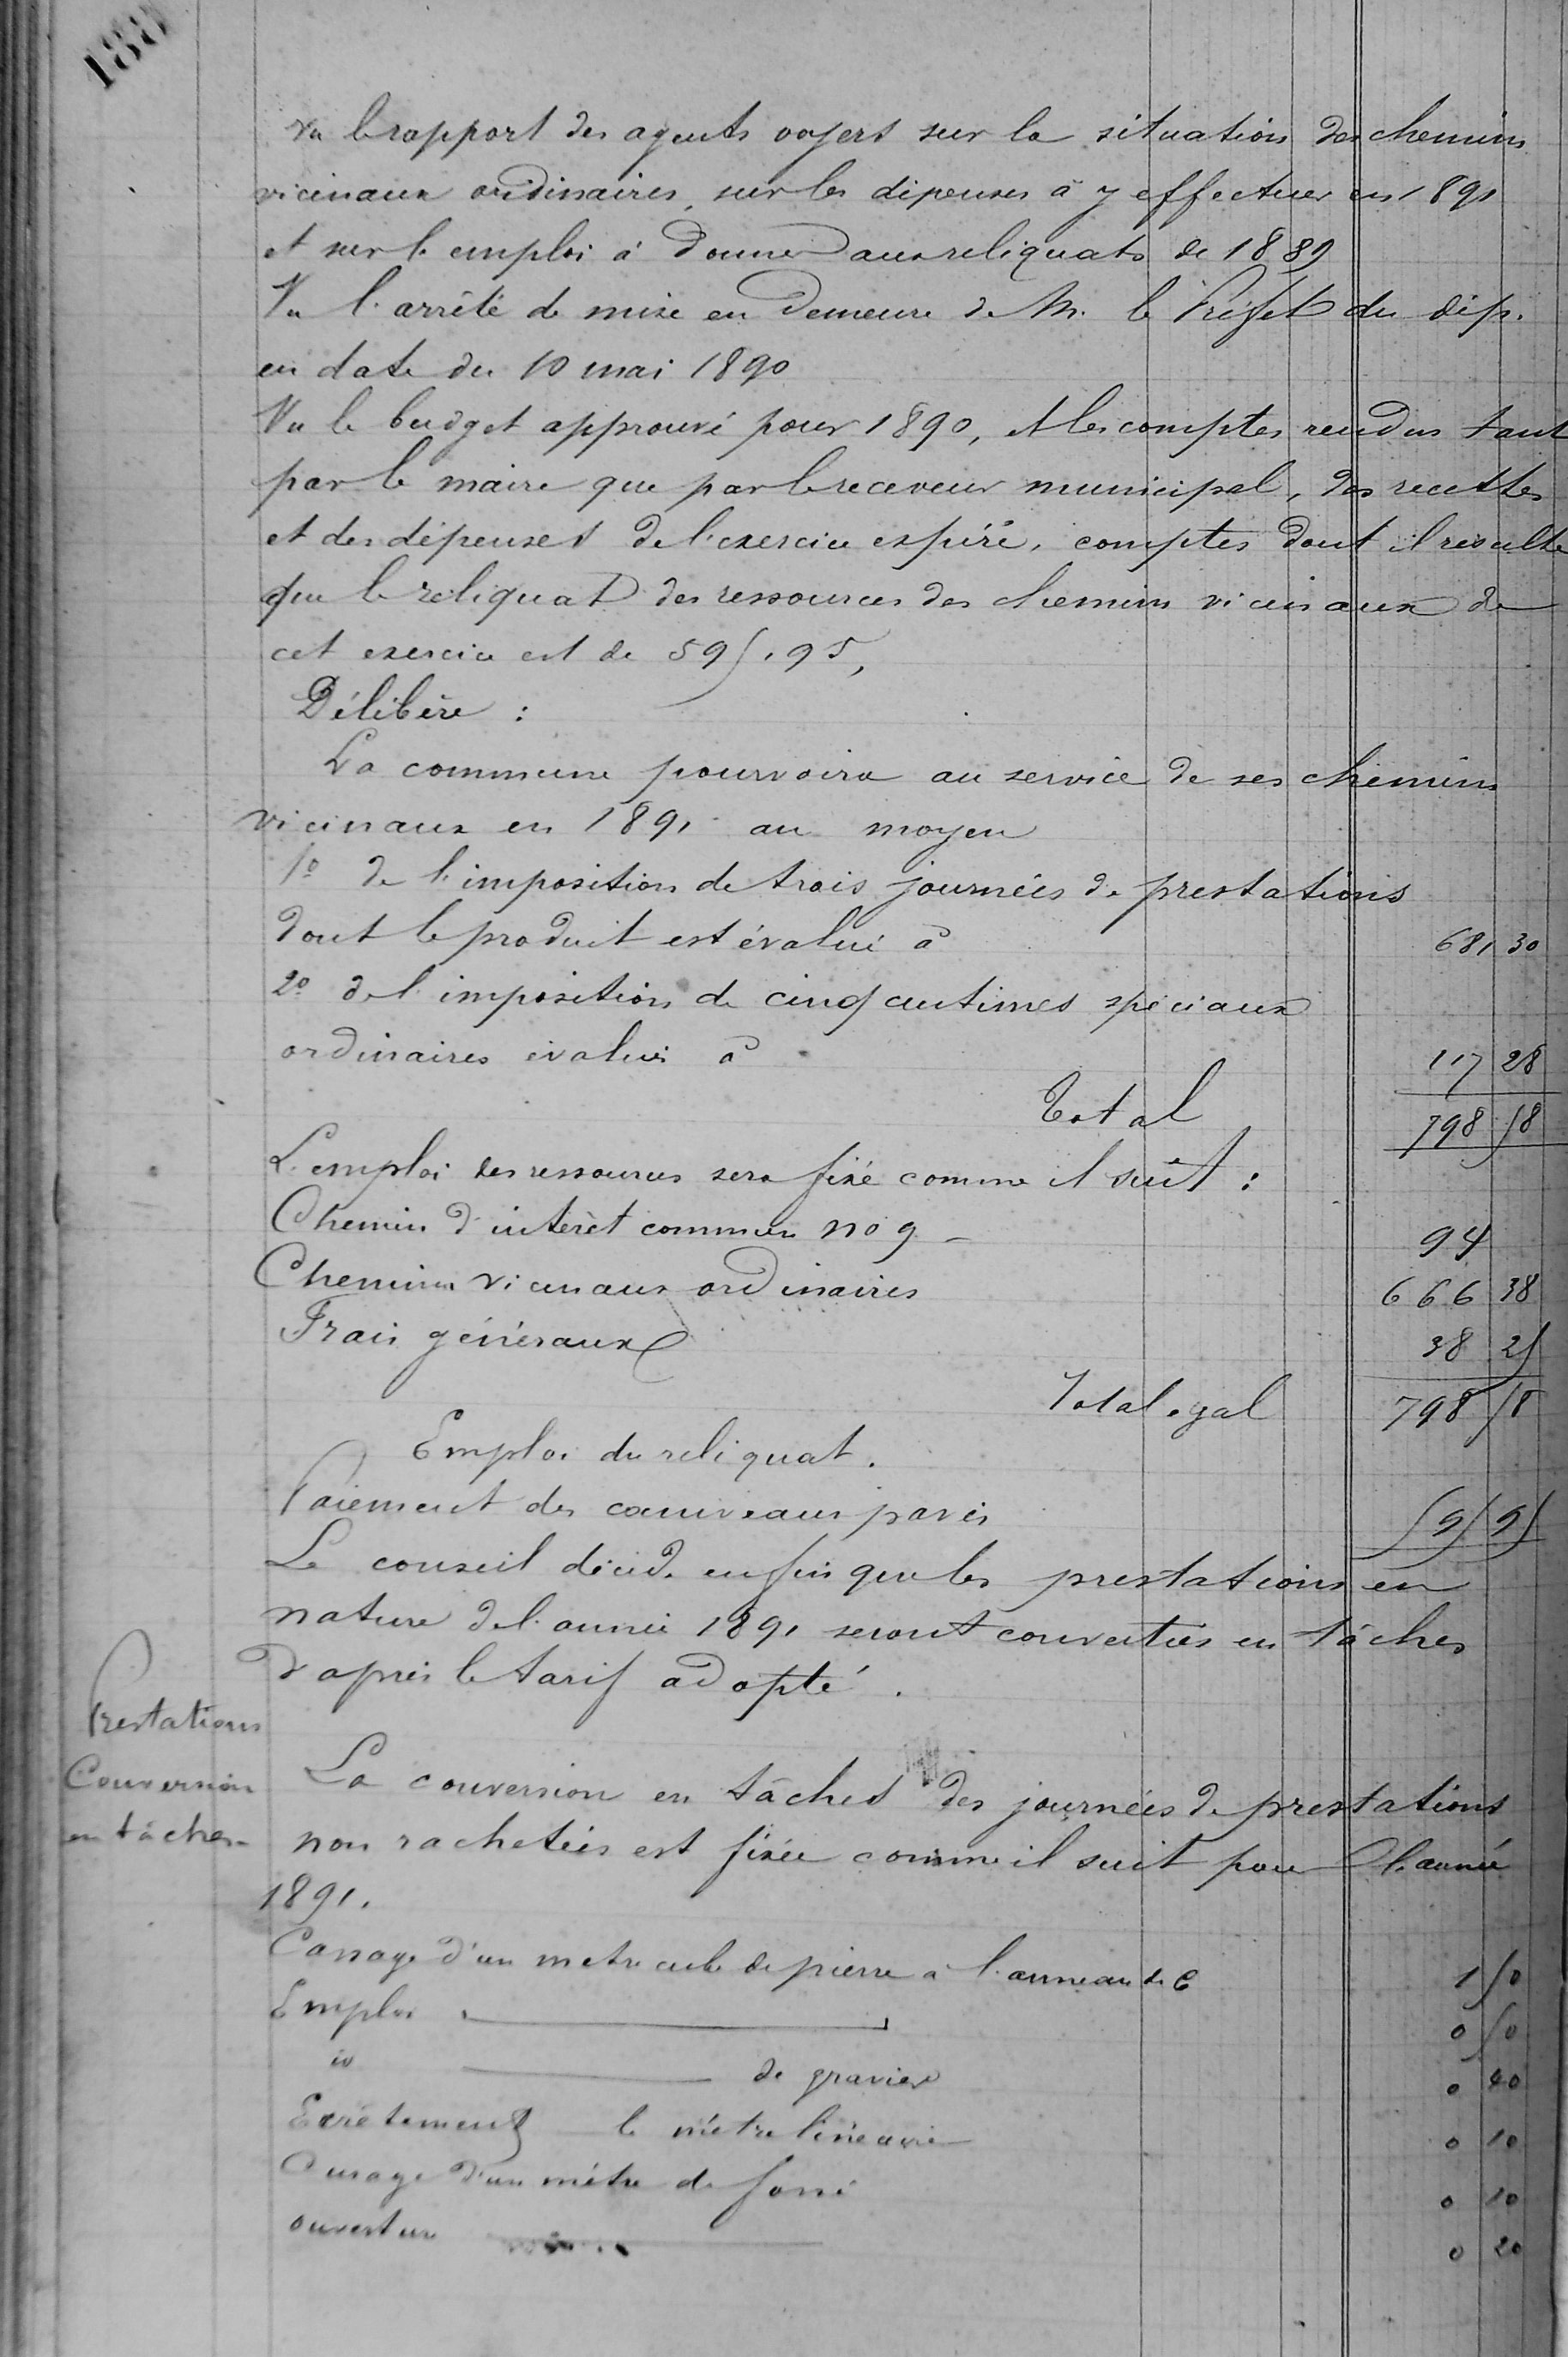 188
Vu le rapport des agents voyers sur la situation des chemins
vicinaux ordinaires, sur les dépenses à y effectuer en 1891
et sur l'emploi à donner aux reliquats de 1889
Vu l'arrêté de mise en demeure de M. le Préfet du dép.
en date du 10 mai 1890
Vu le budget approuvé pour 1890, et les comptes rendus tant
par le maire que par le receveur municipal, des recettes
et des dépenses de l'exercice expiré, comptes dont il résulte
que le reliquat des ressources des chemins vicinaux de
cet exercice est de 595,95,
Délibère :
La commune pourvoira au service de ses chemins
vicinaux en 1891 au moyen
1º de l'imposition de trois journées de prestations
dont le produit est évalué à 681 30
2º de l'imposition de cinq centimes spéciaux
ordinaires évalués à 117 28
Total 798 58
L'emploi des ressources sera fixé comme il suit :
Chemin d'intérêt commun no 9 - 94
Chemins vicinaux ordinaires 666 38
Frais généraux 38 25
Total égal 798 58
Emploi du reliquat.
Paiement des caniveaux pavés 595 95
Le conseil décide enfin que les prestations en
nature de l'année 1891 seront converties en tâches
d'après le tarif adopté.
Prestations
Conversion
en tâches -
La conversion en tâches des journées de prestations
non rachetées est fixée comme il suit pour l'année
1891.
Cassage d'un metre cube de pierre à l'anneau de 6 1 50
Emploi 0 50
id de gravier 0 40
Ecrêtement le mètre linéaire 0 10
Curage d'un mètre de fossé 0 10
ouverture 0 20